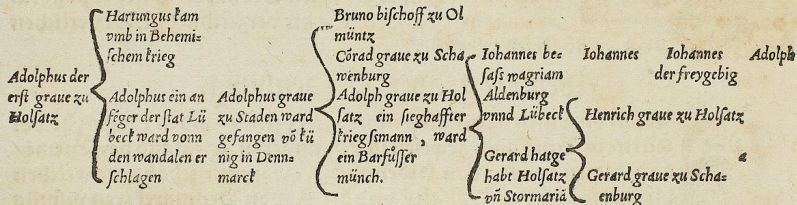 Adolphus der
erst graue zu
Holsatz
Hartungus kam
vmb in Behemi=
schem krieg
Adolphus ein an
féger der stat Lü
beck ward vonn
den wandalen er
schlagen
Adolphus graue
zu Staden ward
gefangen vō kü
nig in Denn=
marck
Bruno bischoff zu Ol
müntz
Cōrad graue zu Scha
wenburg
Adolph graue zu Hol
satz ein sieghaffter
kriegssmann, ward
ein Barfůsser
münch.
Iohannes be=
sass wagriam
Aldenburg
vnnd Lübeck
Gerard hat ge
habt Holsatz
vñ Stormariā
Iohannes
Iohannes
der freygebig
Adolph
Henrich graue zu Holsatz
a
Gerard graue zu Scha=
enburg